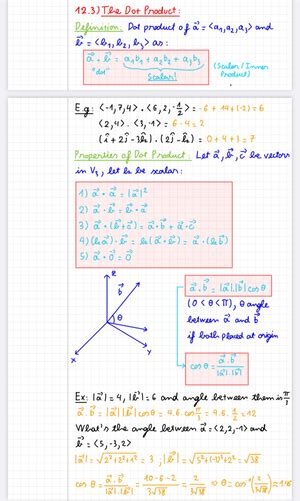 12.3) The Dot Product:
Definition: Dot product of a⃗ = <a₁, a₂, a₃> and
b⃗ = <b₁, b₂, b₃> as:
a⃗ · b⃗ = a₁b₁ + a₂b₂ + a₃b₃
"dot" Scalar!
(Scalar / Inner Product)
E.g: <-1, 7, 4> · <6, 2, -1/2> = -6 + 14 + (-2) = 6
<2, 4> · <3, -1> = 6 - 4 = 2
(î + 2ĵ - 3k̂) · (2ĵ - k̂) = 0 + 4 + 3 = 7
Properties of Dot Product: Let a⃗, b⃗, c⃗ be vectors
in V₃, let k be scalar:
1) a⃗ · a⃗ = |a⃗|²
2) a⃗ · b⃗ = b⃗ · a⃗
3) a⃗ · (b⃗ + c⃗) = a⃗ · b⃗ + a⃗ · c⃗
4) (k a⃗) · b⃗ = k (a⃗ · b⃗) = a⃗ · (k b⃗)
5) a⃗ · 0⃗ = 0
z
b⃗
θ
x
y
a⃗ · b⃗ = |a⃗|.|b⃗| cos θ
(0 < θ < π), θ angle
between a⃗ and b⃗
if both placed at origin
cos θ = a⃗ · b⃗ / |a⃗|.|b⃗|
Ex: |a⃗| = 4, |b⃗| = 6 and angle between them is π/3
a⃗ · b⃗ = |a⃗| |b⃗| cos θ = 4.6. cos π/3 = 4.6. 1/2 = 12
What's the angle between a⃗ = <2, 2, -1> and
b⃗ = <5, -3, 2>
|a⃗| = √2² + 2² + 1² = 3 ; |b⃗| = √5² + (-3)² + 2² = √38
cos θ = a⃗ · b⃗ / |a⃗|.|b⃗| = 10 - 6 - 2 / 3√38 = 2 / 3√38 ⇒ θ = cos⁻¹(2 / 3√38) ≈